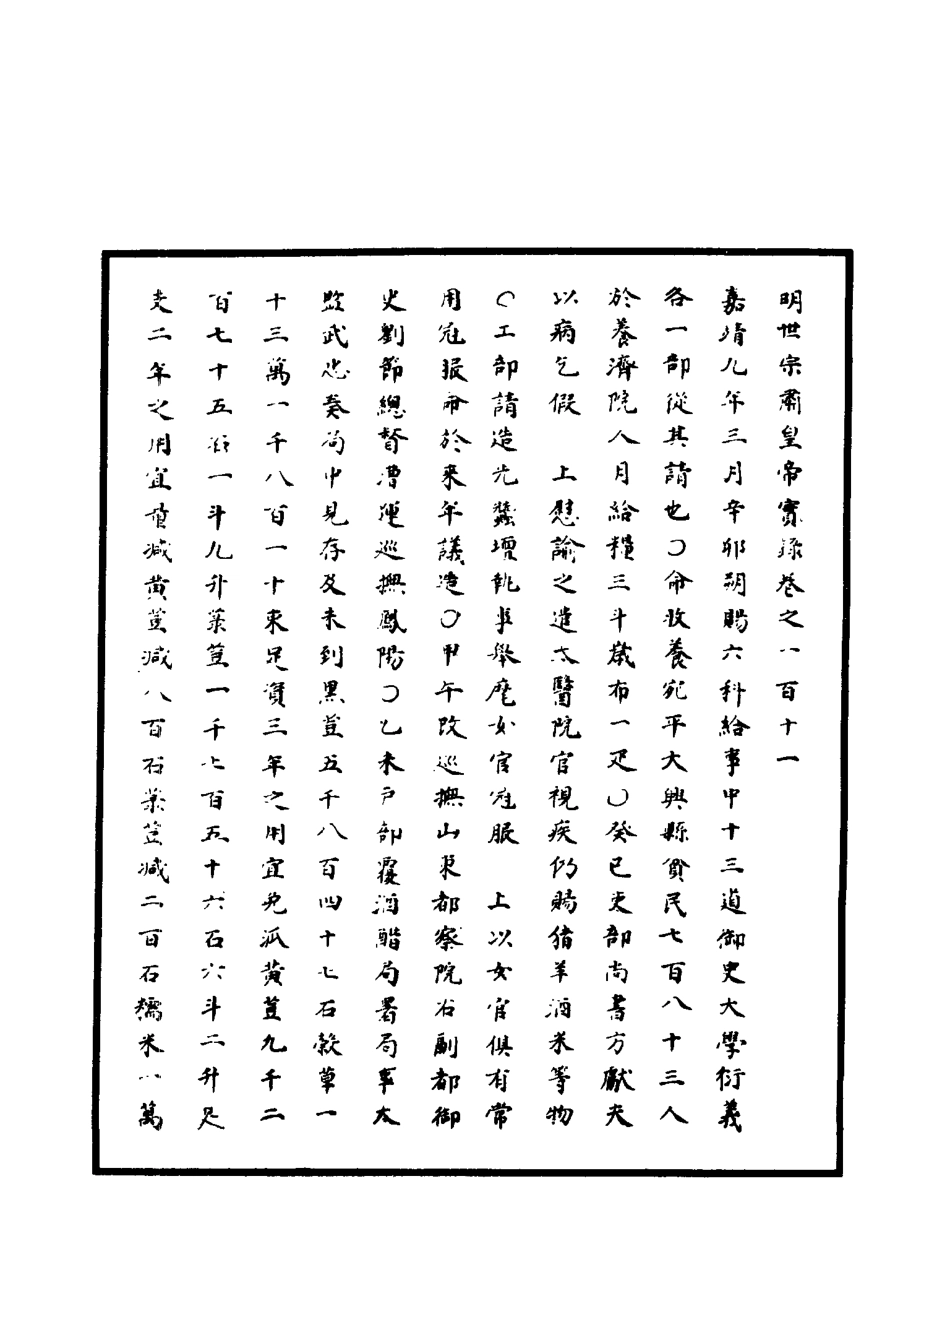 明世宗肅皇帝實録卷之一百十一
嘉靖九年三月辛夘朔賜六科給事中十三道御史大學衍義
各一部從其請也○命收養宛平大興縣貧民七百八十三人
於養濟院人月給糧三斗歲布一疋○癸巳吏部尚書方獻夫
以病乞假　上慰諭之遣太醫院官視疾仍賜猪羊酒米等物
○工部請造先蠶壇執事舉麾女官冠服　上以女官俱有常
用冠服命於來年議造○甲午改巡撫山東都察院右副都御
史劉節總督漕運巡撫鳳陽○乙未戶部覆酒醋局署局事太
監武忠奏局中見存及未到黑荳五千八百四十七石穀草一
十三萬一千八百一十束足資三年之用宜免派黃荳九千二
百七十五石一斗九升菉荳一千七百五十六石六斗二升足
支二年之用宜量減黄荳減八百石菉荳減二百石糯米一萬